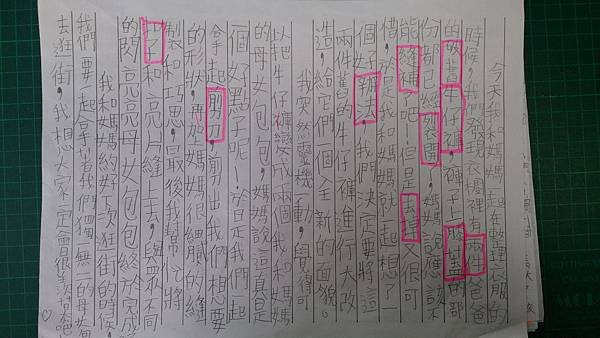 今天我和媽媽一起在整理衣服的
時候，我們發現衣櫃裡有兩個爸爸
的破舊牛仔褲，褲子上膝蓋的部
份都已經裂開，媽媽說應該不
能縫補了吧！但是丟掉又很可
惜，於是我和媽媽就一起想了一
個好辦法，我們決定要將這
兩件舊的牛仔褲進行大改
造，給它們一個全新的面貌。
我突然靈機一動，覺得可
以把牛仔褲變成兩個我和媽媽
的母女包包，媽媽說這真是
一個好點子呢！於是我們一起
拿起剪刀，剪出我們想要
的形狀，再加媽媽很細膩的縫
製和巧思，最後我幫忙將
子和亮片縫上去，與眾不同
的閃亮亮母女包包終於完成
我和媽媽約好下次逛街的時候，
我們要一起拿著我們獨一無二的母女包
去逛街，我想大家一定會很羨慕吧